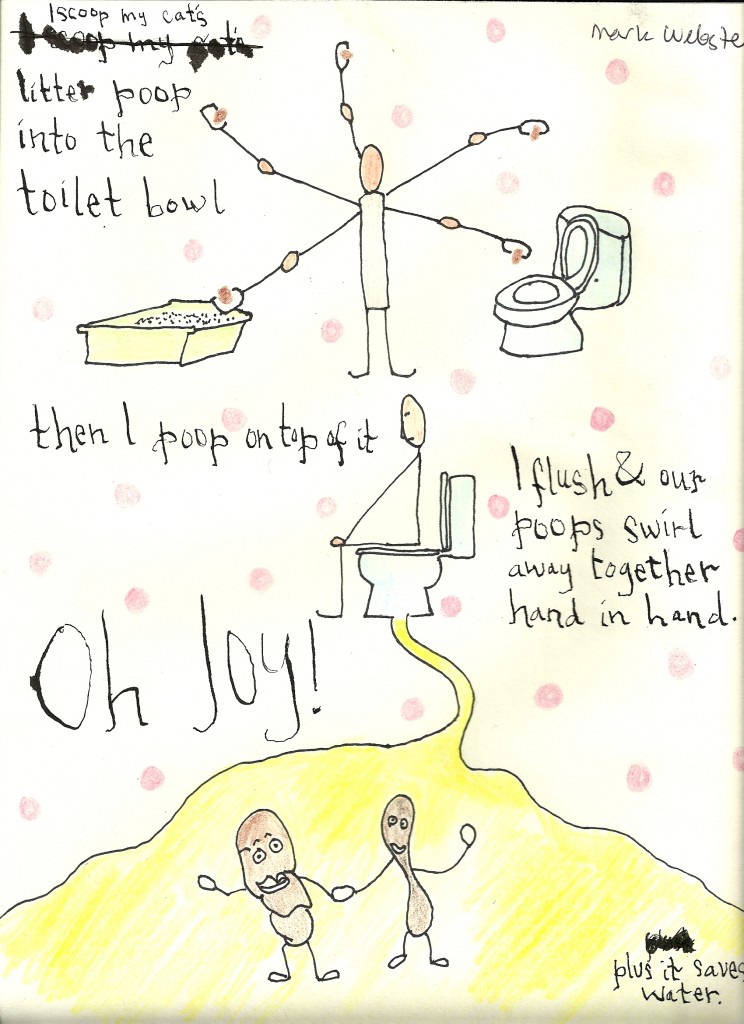 I scoop my cat's
I scoop my cat's
litter poop
into the
toilet bowl
Mark Webster
then I poop on top of it
I flush & our
poops swirl
away together
hand in hand.
Oh Joy!
plus it saves
water.